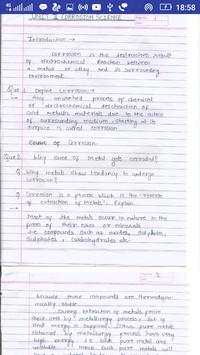 18:58
UNIT II CORROSION SCIENCE
Introduction →
Corrosion is the destructive result
of electrochemical reaction between
a metal or alloy and its surrounding
environment.
Que 1 Define Corrosion →
→ Any unwanted process of chemical
or electrochemical destruction of
and metallic materials due to the action
of surrounding medium starting at its
surface is called corrosion
Cause of Corrosion
Que 2 Why some of Metal gets corroded?
Q Why metals show tendency to undergo
corrosion?
Q Corrosion is a process which is the reverse
of extraction of metals. Explain
→ Most of the metals occur in nature in the
form of their ores or minerals
i.e. compounds such as oxides, sulphides,
sulphates, carbonates etc
2
because these compounds are thermodyna-
mically stable
During extraction of metals from
their ores by metallurgy process lot of
energy is supplied. Thus pure metals
obtained by metallurgy process have very
high energy i.e. such pure metal are
unstable. Hence such pure metals will